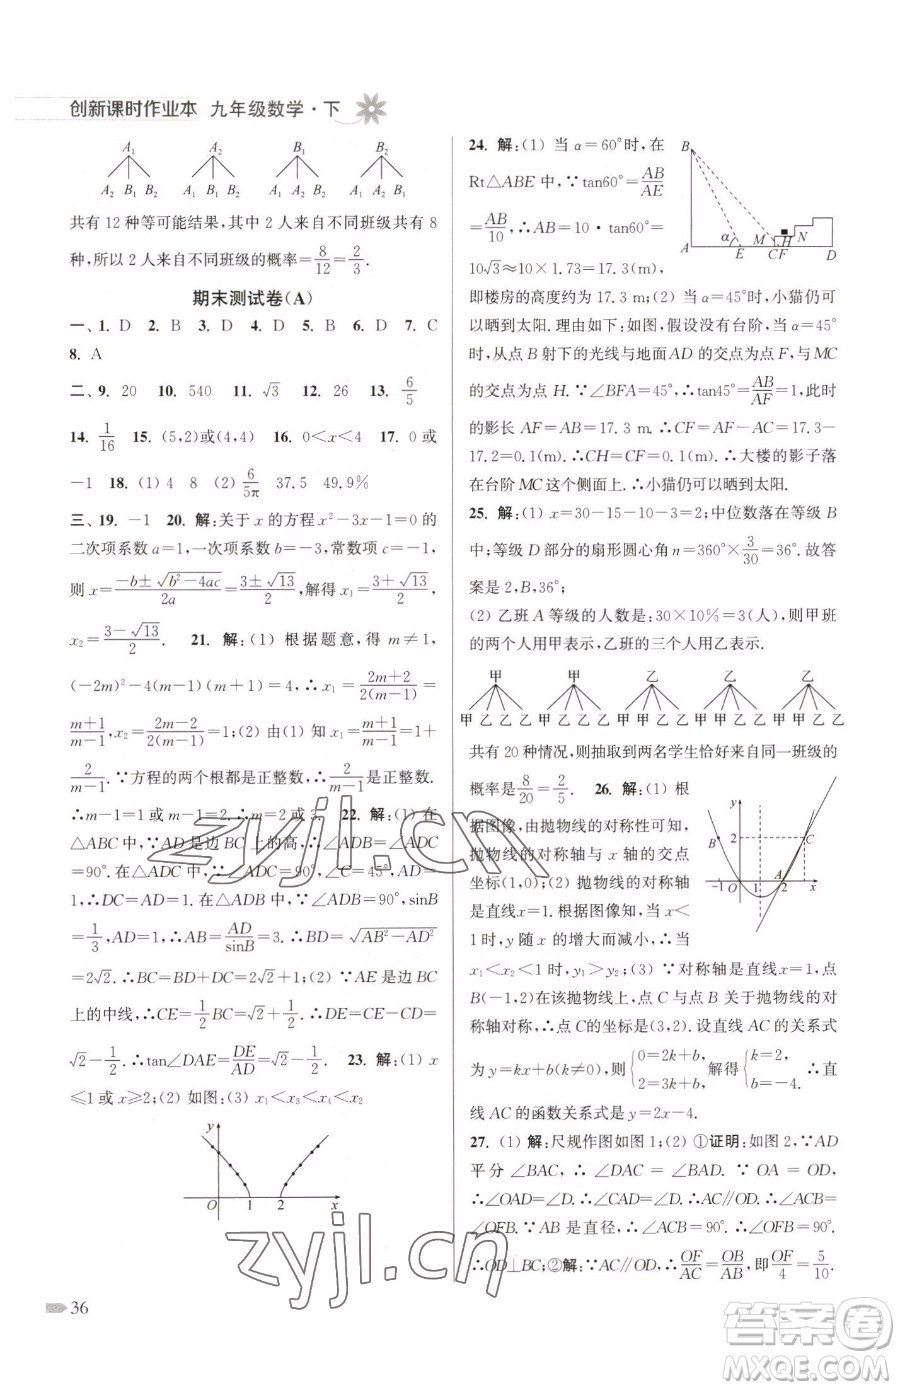 创新课时作业本 九年级数学·下
A₁ B₁ A₂ B₂
A₂ B₁ B₂
A₁ B₁ B₂
A₁ A₂ B₂
A₁ A₂ B₁
共有 12 种等可能结果,其中 2 人来自不同班级共有 8
种,所以 2 人来自不同班级的概率=8/12=2/3.
期末测试卷(A)
一、1. D 2. B 3. D 4. D 5. D 6. D 7. C
8. A
二、9. 20 10. 540 11. √3 12. 26 13. 6/5
14. 1/16 15. (5,2)或(4,4) 16. 0<x<4 17. 0 或
-1 18. (1) 4 8 (2) 6/5π 37.5 49.9%
三、19. -1 20. 解:关于 x 的方程 x²-3x-1=0 的
二次项系数 a=1,一次项系数 b=-3,常数项 c=-1,
则 x=(-b±√(b²-4ac))/2a=(3±√13)/2,解得 x₁=(3+√13)/2,
x₂=(3-√13)/2. 21. 解:(1) 根据题意,得 m≠1,
(-2m)²-4(m-1)(m+1)=4,∴x₁=(2m+2)/(2(m-1))=
(m+1)/(m-1),x₂=(2m-2)/(2(m-1))=1;(2) 由(1) 知 x₁=(m+1)/(m-1)=1+
2/(m-1).∵方程的两个根都是正整数,∴2/(m-1)是正整数,
∴m-1=1 或 2.∴m=2 或 3. 22. 解:(1) 在
△ABC 中,∵AD 是边 BC 上的高,∴∠ADB=∠ADC
=90°.在△ADC 中,∵∠ADC=90°,∠C=45°,AD=
1,∴DC=AD=1.在△ADB 中,∵∠ADB=90°,sinB
=1/3,AD=1,∴AB=AD/sinB=3.∴BD=√(AB²-AD²)
=2√2.∴BC=BD+DC=2√2+1;(2) ∵AE 是边 BC
上的中线,∴CE=1/2BC=√2+1/2.∴DE=CE-CD=
√2-1/2.∴tan∠DAE=DE/AD=√2-1/2. 23. 解:(1) x
≤1 或 x≥2;(2) 如图;(3) x₁<x₃<x₄<x₂
y
O 1 2 x
24. 解:(1) 当 α=60°时,在
Rt△ABE 中,∵tan60°=AB/AE
=AB/10,∴AB=10·tan60°=
10√3≈10×1.73=17.3(m),
B
α M H N
A E CF D
即楼房的高度约为 17.3 m;(2) 当 α=45°时,小猫仍可
以晒到太阳.理由如下:如图,假设没有台阶,当 α=45°
时,从点 B 射下的光线与地面 AD 的交点为点 F,与 MC
的交点为点 H.∵∠BFA=45°,∴tan45°=AB/AF=1,此时
的影长 AF=AB=17.3 m.∴CF=AF-AC=17.3-
17.2=0.1(m).∴CH=CF=0.1(m).∴大楼的影子落
在台阶 MC 这个侧面上.∴小猫仍可晒到太阳.
25. 解:(1) x=30-15-10-3=2;中位数落在等级 B
中;等级 D 部分的扇形圆心角 n=360°×3/30=36°.故答
案是 2,B,36°;
(2) 乙班 A 等级的人数是:30×10%=3(人),则甲班
的两个人用甲表示,乙班的三个人用乙表示.
甲 甲 乙 乙 乙
甲 乙 乙 乙 甲 乙 乙 乙 甲 甲 乙 乙 甲 甲 乙 乙 甲 甲 乙 乙
共有 20 种情况,则抽取到两名学生恰好来自同一班级的
概率是8/20=2/5. 26. 解:(1) 根
据图像,由抛物线的对称性可知,
抛物线的对称轴与 x 轴的交点
坐标(1,0);(2) 抛物线的对称轴
是直线x=1.根据图像知,当 x<
1 时,y 随 x 的增大而减小,∴当
y
B 2 C
A
-1 O 1 2 x
x₁<x₂<1 时,y₁>y₂;(3) ∵对称轴是直线 x=1,点
B(-1,2)在该抛物线上,点 C 与点 B 关于抛物线的对
称轴对称,∴点 C 的坐标是(3,2).设直线 AC 的关系式
为 y=kx+b(k≠0),则{0=2k+b, 2=3k+b,∴{k=2, b=-4.∴直
线 AC 的函数关系式是 y=2x-4.
27. (1) 解:尺规作图如图 1;(2) ①证明:如图 2,∵AD
平分 ∠BAC,∴∠DAC = ∠BAD.∵ OA = OD,
∴∠OAD=∠D.∴∠CAD=∠D.∴AC∥OD.∴∠ACB=
∠OFB.∵AB 是直径,∴∠ACB=90°.∴∠OFB=90°.
∴OD⊥BC;②解:∵AC∥OD,∴OF/AC=OB/AB,即OF/4=5/10.
36
zyjl.cn
zyjl.cn
答案圈
MXQE.COM